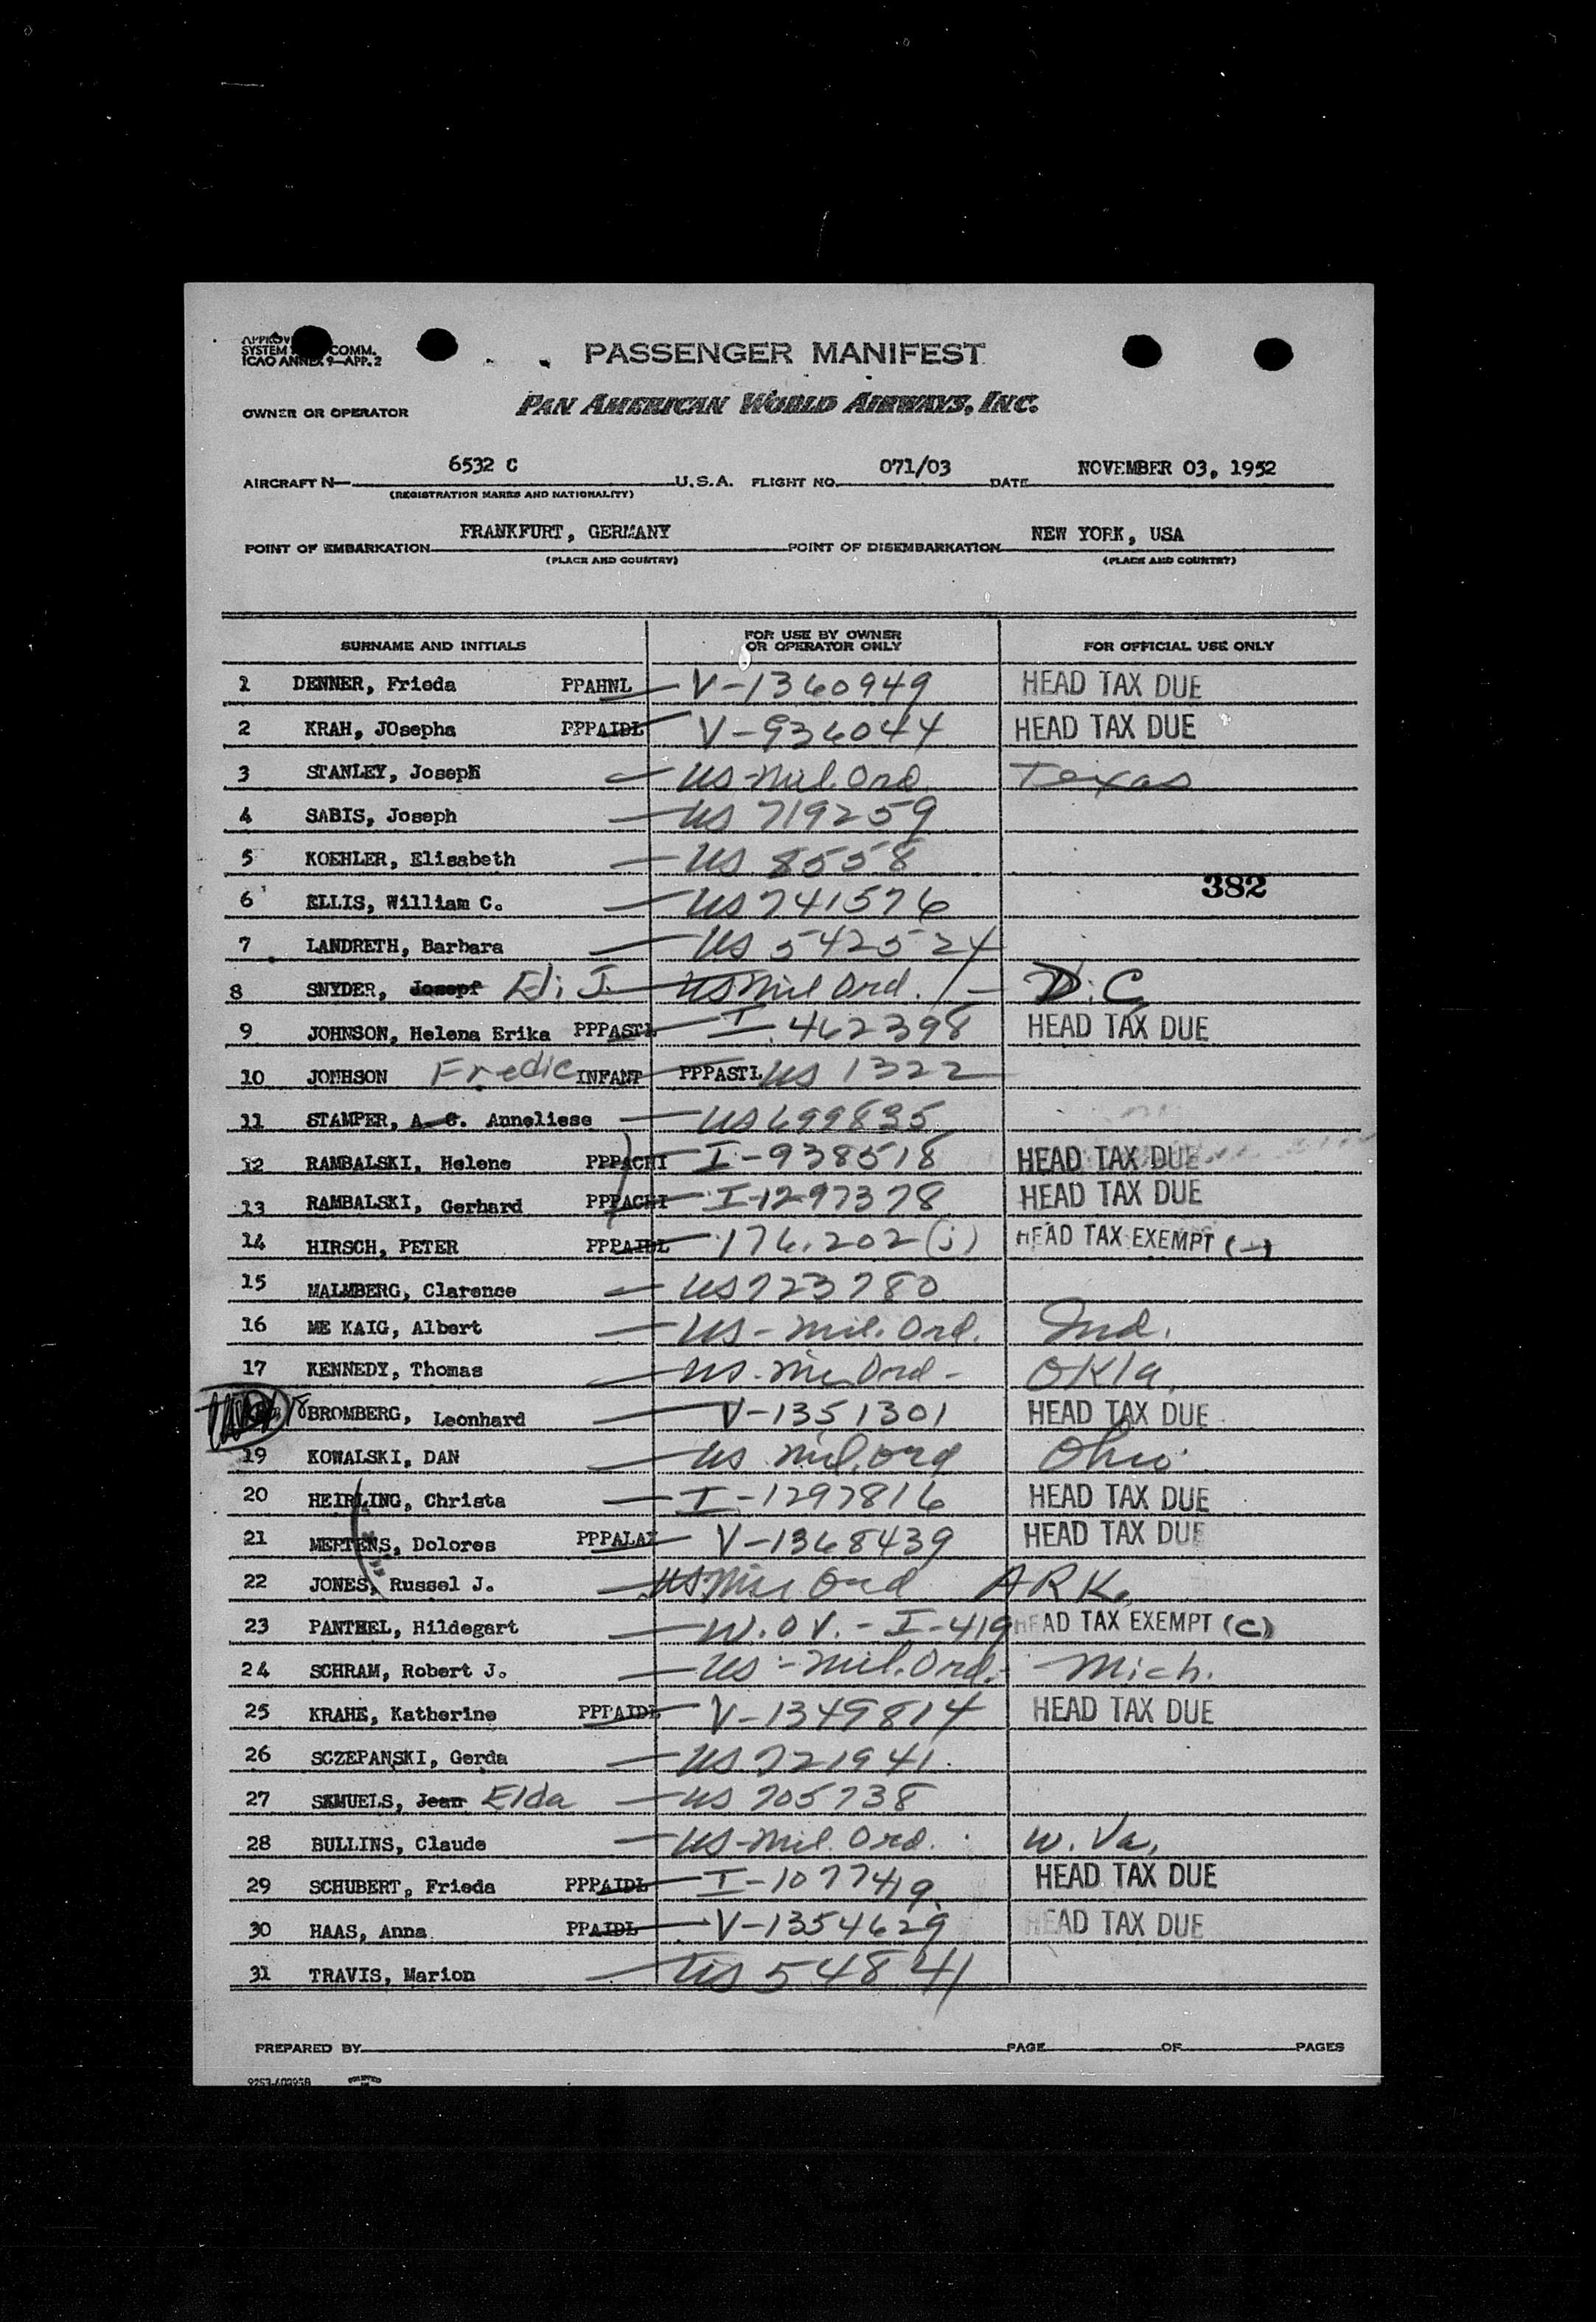 APPROV
SYSTEM COMM.
ICAO ANNEX 9—APP. 2
PASSENGER MANIFEST
OWNER OR OPERATOR PAN AMERICAN WORLD AIRWAYS, INC.
AIRCRAFT N— 6532 C U.S.A. FLIGHT NO. 071/03 DATE NOVEMBER 03, 1952
(REGISTRATION MARKS AND NATIONALITY)
POINT OF EMBARKATION FRANKFURT, GERMANY POINT OF DISEMBARKATION NEW YORK, USA
(PLACE AND COUNTRY) (PLACE AND COUNTRY)
SURNAME AND INITIALS FOR USE BY OWNER OR OPERATOR ONLY FOR OFFICIAL USE ONLY
1 DENNER, Frieda PPAHNL V-1360949 HEAD TAX DUE
2 KRAH, JOsepha PPPAIDL V-936044 HEAD TAX DUE
3 STANLEY, Joseph US-Mil. Ord Texas
4 SABIS, Joseph US 719259
5 KOEHLER, Elisabeth US 8558
382
6 ELLIS, William C. US 741576
7 LANDRETH, Barbara US 542524
8 SNYDER, Josepf Eli J. US Mil Ord. D.C.
9 JOHNSON, Helena Erika PPPASTL I. 462398 HEAD TAX DUE
10 JOHHSON Fredic INFANT PPPASTL US 1322
11 STAMPER, A. C. Anneliese US 699835
12 RAMBALSKI, Helene PPPACHI I-938518 HEAD TAX DUE
13 RAMBALSKI, Gerhard PPPACHI I-1297378 HEAD TAX DUE
14 HIRSCH, PETER PPPAIDL 176.202 (j) HEAD TAX EXEMPT (-)
15 MALMBERG, Clarence US 723780
16 ME KAIG, Albert US-Mil. Ord. Ind.
17 KENNEDY, Thomas US. Mil Ord- Okla.
18 BROMBERG, Leonhard V-1351301 HEAD TAX DUE
19 KOWALSKI, DAN US Mil. Ord Ohio
20 HEIRLING, Christa I-1297816 HEAD TAX DUE
21 MERTENS, Dolores PPPALAX V-1368439 HEAD TAX DUE
22 JONES, Russel J. US Mil Ord ARK.
23 PANTHEL, Hildegart W.O V.-I-419 HEAD TAX EXEMPT (C)
24 SCHRAM, Robert J. US-Mil. Ord. Mich.
25 KRAHE, Katherine PPPAIDL V-1349814 HEAD TAX DUE
26 SCZEPANSKI, Gerda US 721941.
27 SEMUELS, Jean Elda US 705738
28 BULLINS, Claude US-Mil. Ord. W. Va.
29 SCHUBERT, Frieda PPPAIDL I-1077419 HEAD TAX DUE
30 HAAS, Anna PPAIDL V-1354629 HEAD TAX DUE
31 TRAVIS, Marion US 54841
PREPARED BY PAGE OF PAGES